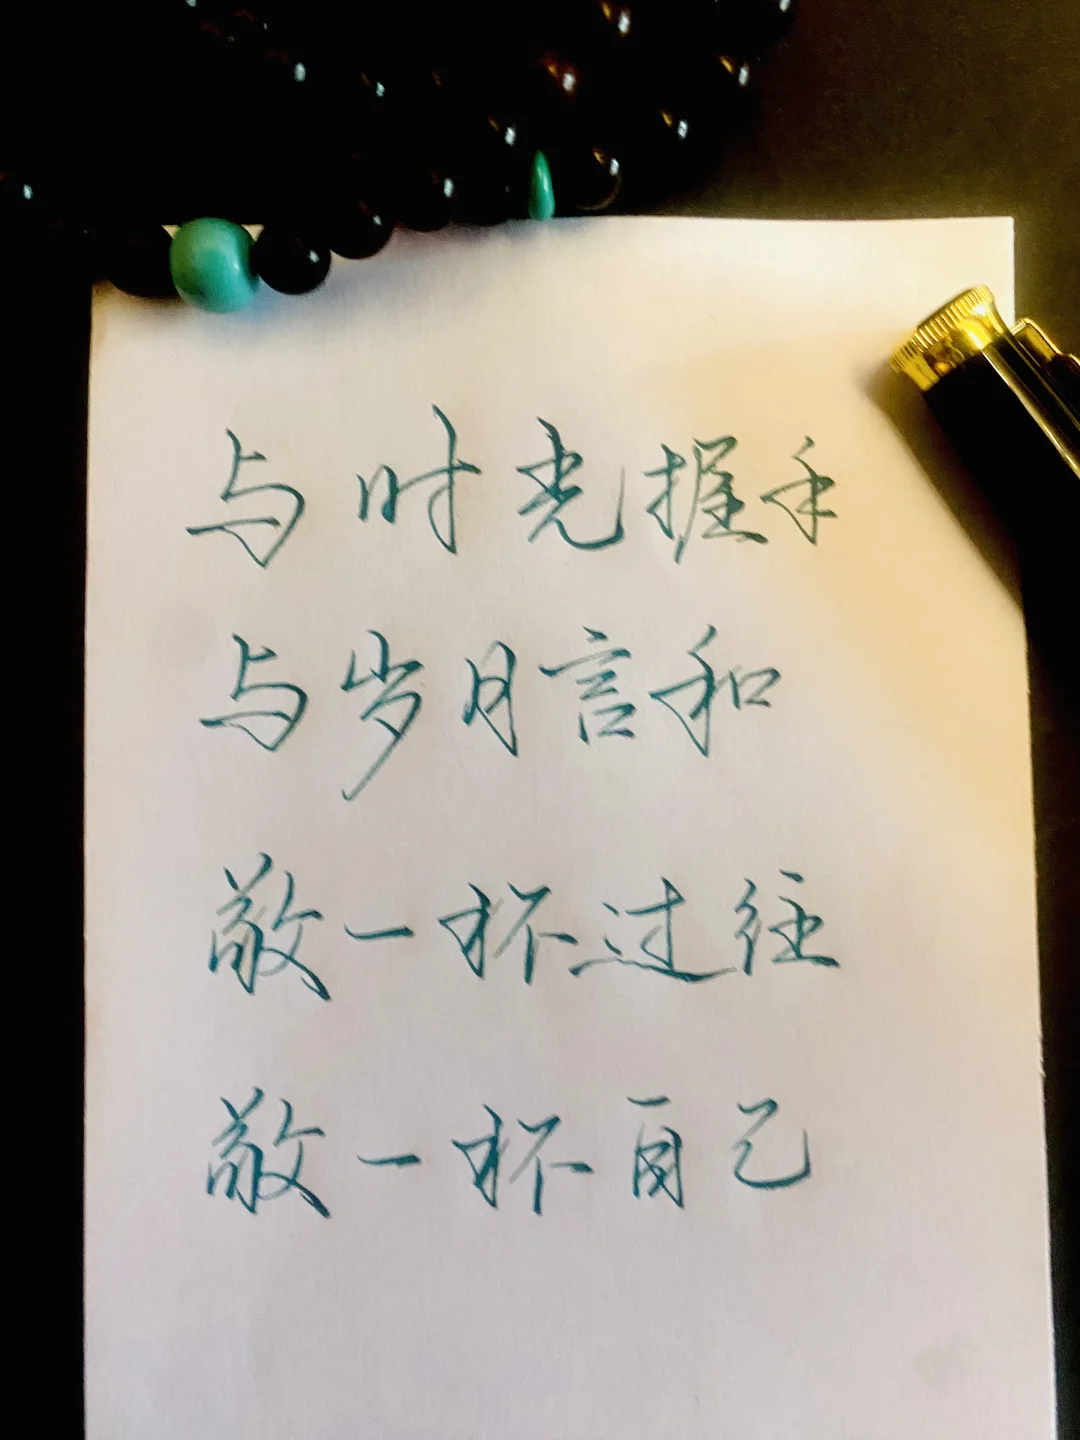 与时光握手
与岁月言和
敬一杯过往
敬一杯自己